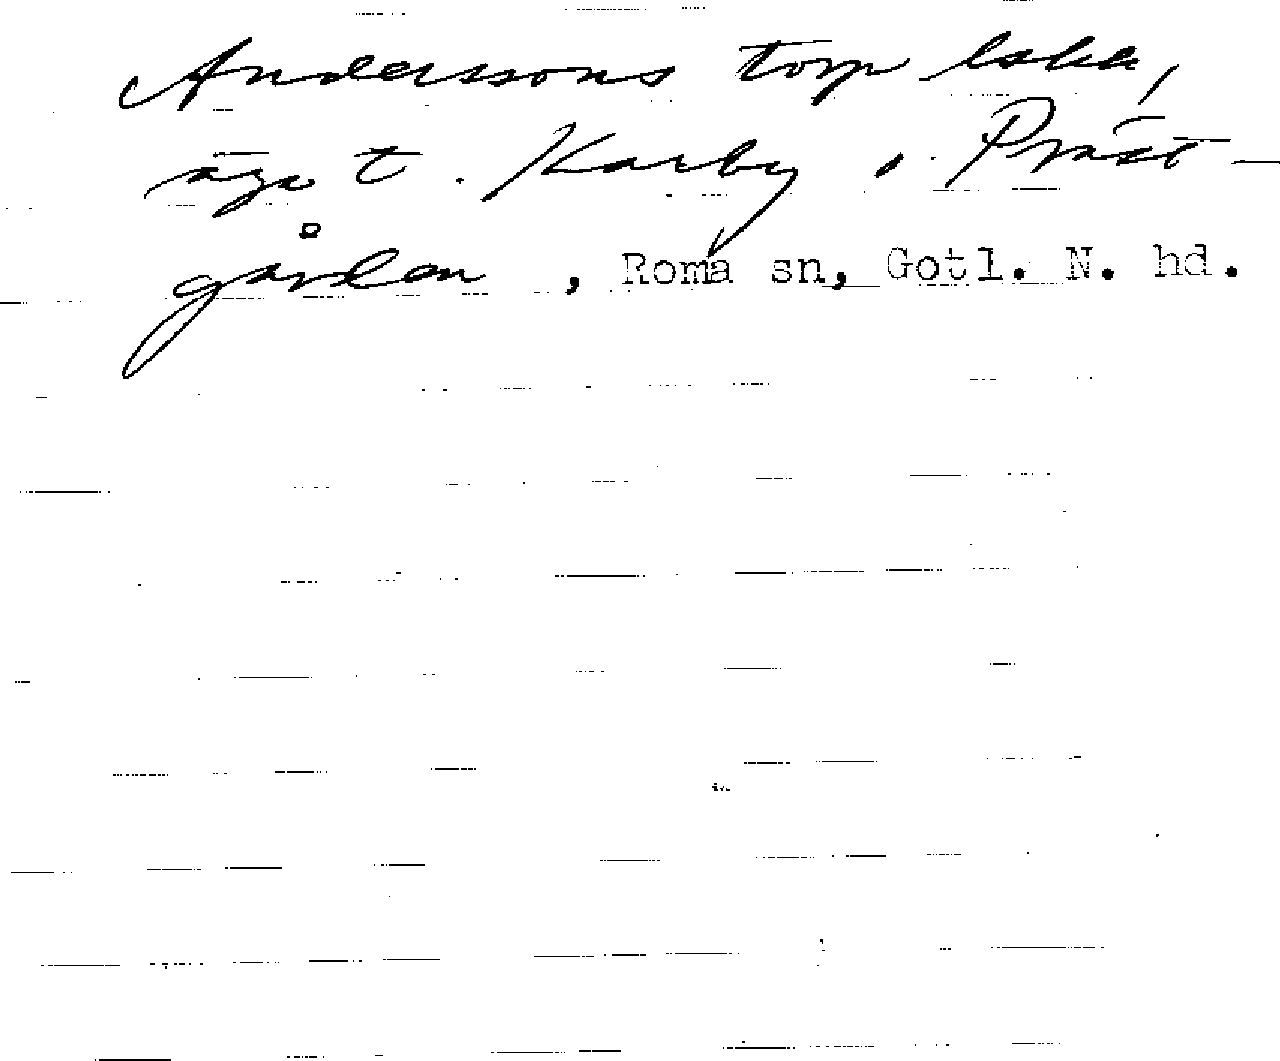 Anderssons torp
äga t. Karby o. Präst-
gården, Roma sn, Gotl. N. hd.